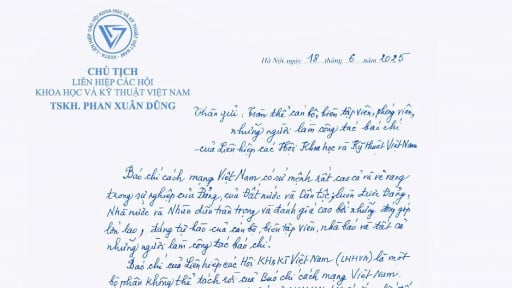 LIÊN HIỆP CÁC HỘI KHOA HỌC VÀ KỸ THUẬT VIỆT NAM
CHỦ TỊCH
LIÊN HIỆP CÁC HỘI
KHOA HỌC VÀ KỸ THUẬT VIỆT NAM
TSKH. PHAN XUÂN DŨNG
Hà Nội, ngày 18 tháng 6 năm 2025
Thân gửi: Toàn thể cán bộ, biên tập viên, phóng viên,
những người làm công tác báo chí
của Liên hiệp các Hội Khoa học và Kỹ thuật Việt Nam
Báo chí cách mạng Việt Nam có sứ mệnh rất cao cả và vẻ vang
trong sự nghiệp của Đảng, của Đất nước và Dân tộc, luôn được Đảng,
Nhà nước và Nhân dân trân trọng và đánh giá cao bởi những đóng góp
lớn lao, đáng tự hào của cán bộ, biên tập viên, nhà báo và tất cả
những người làm công tác báo chí.
Báo chí của Liên hiệp các Hội KH&KT Việt Nam (LHHVN) là một
bộ phận không thể tách rời của Báo chí cách mạng Việt Nam.